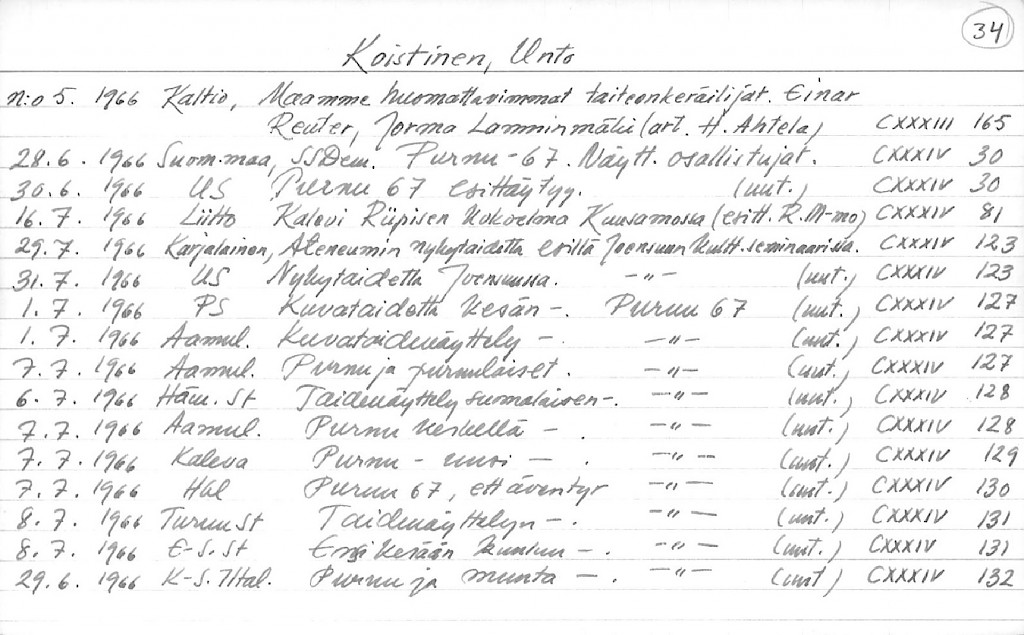 34
Koistinen, Unto
n:o 5. 1966 Kaltio, Maamme huomattavimmat taiteenkeräilijat. Einar
Reuter, Jorma Lamminmäki (art. H. Ahtela) CXXXIII 165
28.6. 1966 Suom.maa, SSDem. Purnu-67. Näytt. osallistujat. CXXXIV 30
30.6. 1966 US Purnu 67 esittäytyy. (mut.) CXXXIV 30
16.7. 1966 Liitto Kalevi Riipisen kokoelma Kuusamossa (esitt. R. M-mo) CXXXIV 81
29.7. 1966 Karjalainen, Ateneumin nykytaidetta esillä Joensuun kultt.seminaarissa. CXXXIV 123
31.7. 1966 US Nykytaidetta Joensuussa. -"- (mut.) CXXXIV 123
1.7. 1966 PS Kuvataidetta kesän -. Purnu 67 (mut.) CXXXIV 127
1.7. 1966 Aamul. Kuvataidenäyttely -. -"- (mut.) CXXXIV 127
7.7. 1966 Aamul. Purnu ja purnulaiset. -"- (mut.) CXXXIV 127
6.7. 1966 Häm.St Taidenäyttely suomalaisen-. -"- (mut.) CXXXIV 128
7.7. 1966 Aamul. Purnu keskellä -. -"- (mut.) CXXXIV 128
7.7. 1966 Kaleva Purnu - uusi -. -"- (mut.) CXXXIV 129
7.7. 1966 Hbl Purnu 67, ett äventyr -"- (mut.) CXXXIV 130
8.7. 1966 Turun St Taidenäyttelyn -. -"- (mut.) CXXXIV 131
8.7. 1966 E-S.St Ensi kesään kuuluu -. -"- (mut.) CXXXIV 131
29.6. 1966 K-S. Iltal. Purnu ja muuta -. -"- (mut) CXXXIV 132